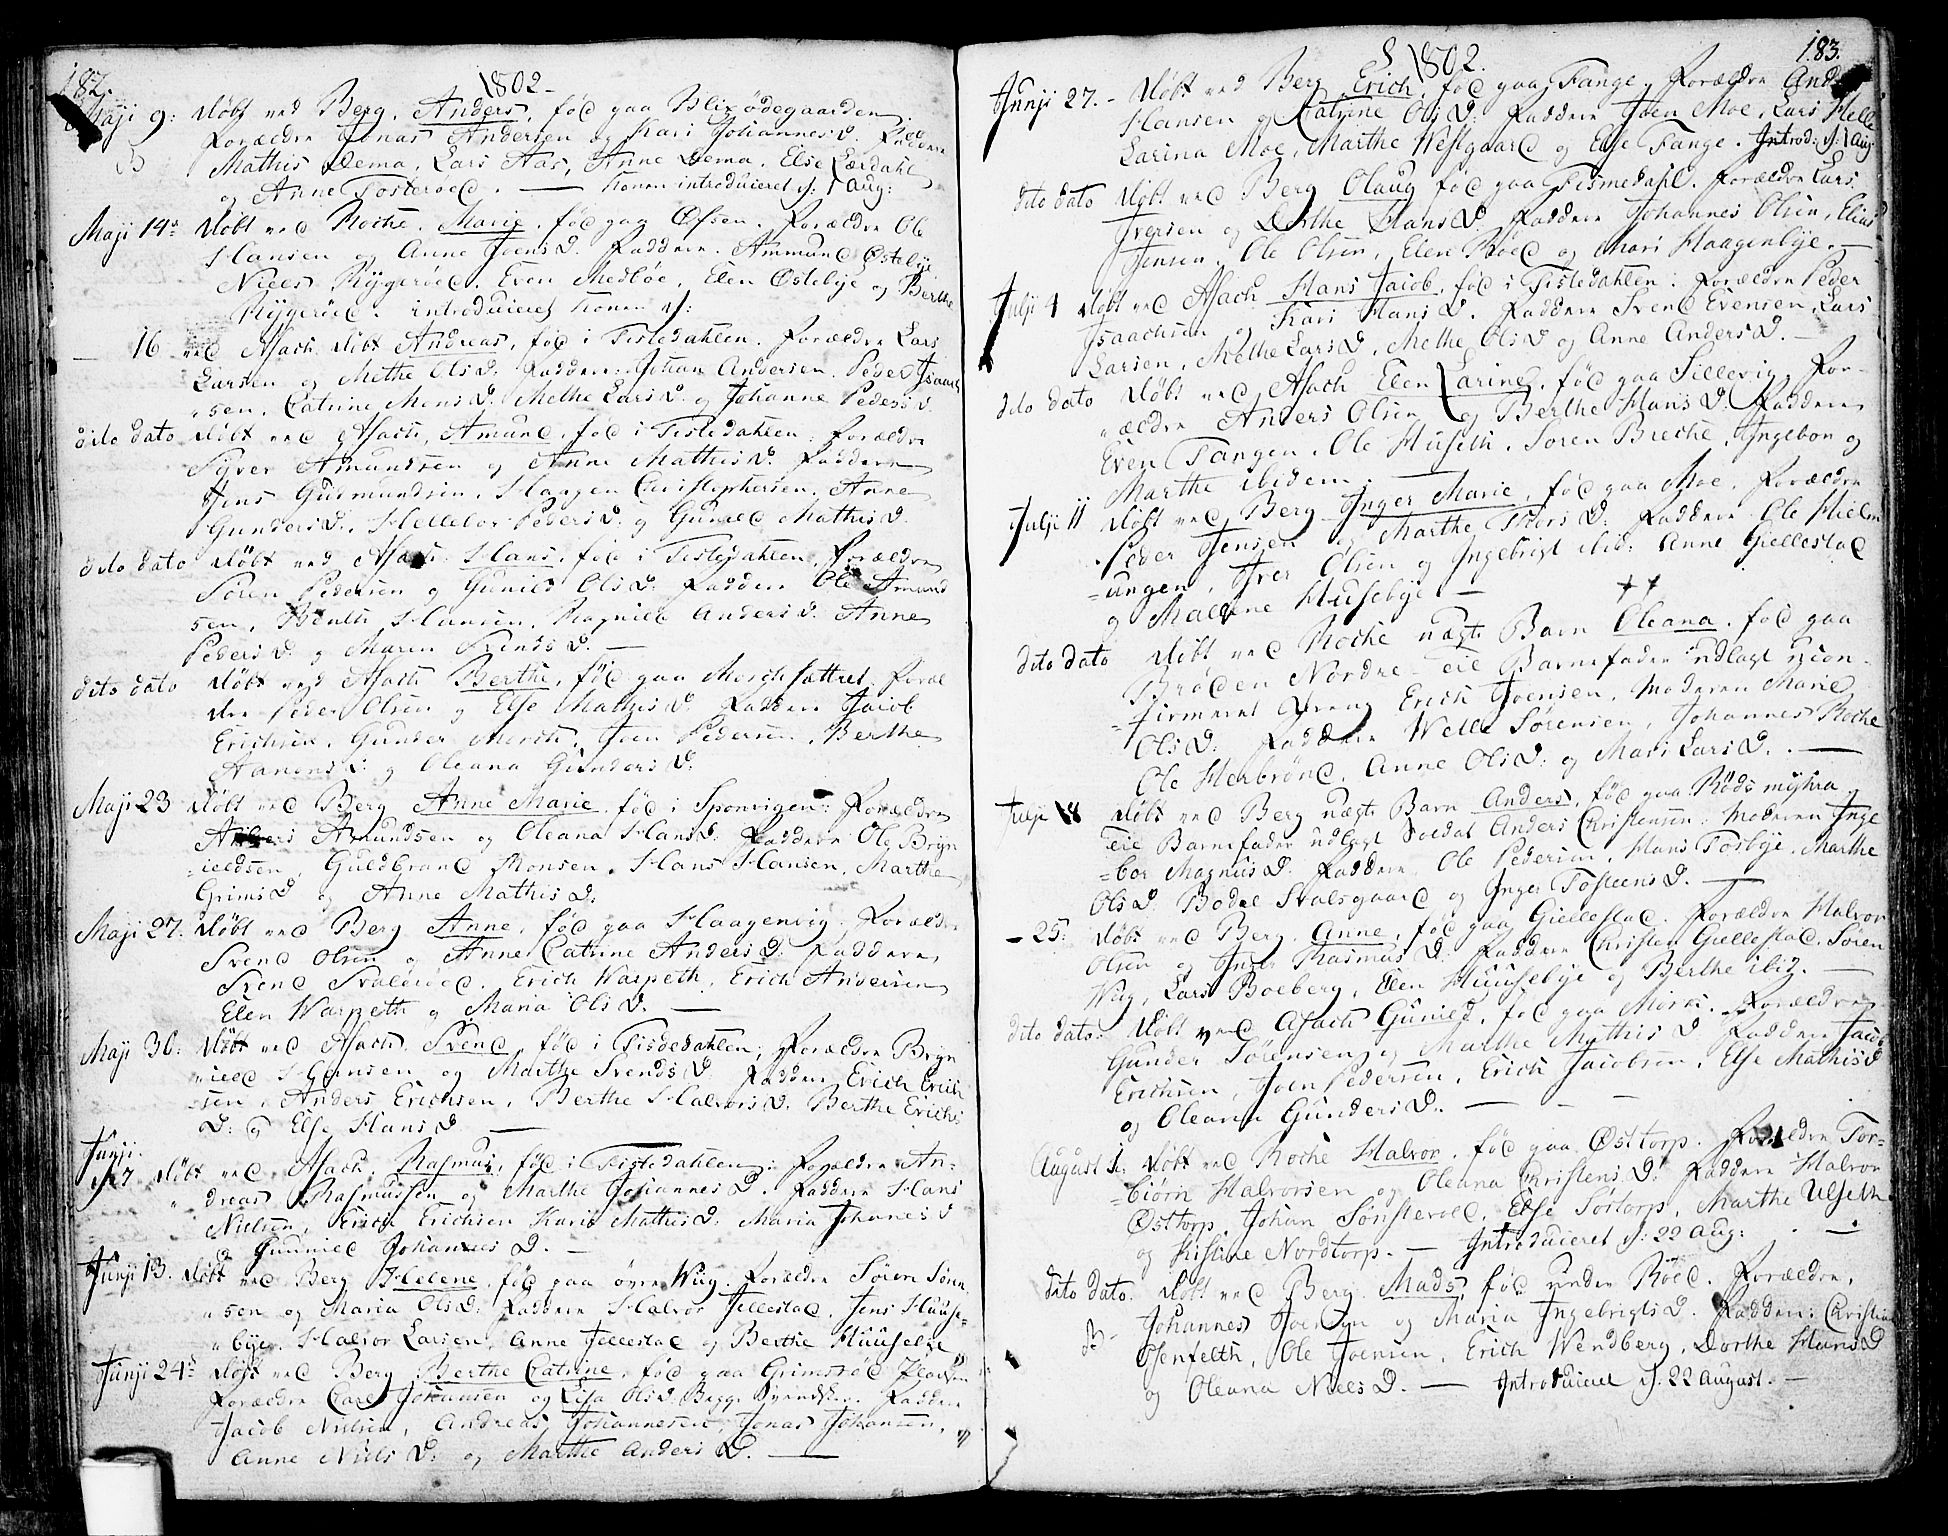 182.
1802.
Maji 9: Døbt ved Berg, Anders, fød paa Blixødegaarden
Forældre Jonas Andersen og Kari JohannesD. Faddere
Mathis Dema, Lars Aas, Anne Dema, Else Lærdahl
og Anne Fosterøed. — Konen introduceret d: 1 Aug:
Maji 14de Døbt ved Rocke, Marie, fød paa Øfsen. Forældre Ole
Hansen og Anne JoensD. Faddere. Ammund Østebye
Niels Rygerøed, Even Medbøe, Elen Østebye og Berthe
Rygerøed. introduceret Konen d:
— 16 ved Asach Døbt Andreas, fød i Tistedahlen. Forældre Lars
Larsen og Methe OlsD. Faddere: Johan Andersen, Peder Isaach
sen, Catrine MonsD. Methe LarsD. og Johanne PedersD.
dito dato Døbt ved Asach, Amund, fød i Tistedahlen. forældre
Syver Amundsen og Anne MathisD. Faddere
Jens Gudmundsen, Haagen Christophersen, Anne
GundersD., Hellebor PedersD. og Gunild MathisD.
dito dato Døbt ved Asach Hans, fød i Tistedahlen, forældre
Søren Pedersen og Gunild OlsD. Faddere Ole Amund
sen, Bendt Hansen, Ragnild AndersD. Anne
PedersD. og Maren SvendsD. —
dito dato Døbt ved Asach Berthe, fød paa Morchsættret. foræl
dre Peder Olsen og Else MathisD. Faddere Jacob
Erichsen, Gunder Morch, Joen Pedersen, Berthe
AanensD: og Oleana GundersD.
Maji 23 Døbt ved Berg Anne Marie, fød i Sponvigen: Forældre
Anders Amundsen og Oleana HansD: Faddere Ole Bryn
ieldsen, Guldbrand Monsen, Hans Hansen, Marthe
GrimsD og Anne MathisD.
Maji 27: Døbt ved Berg Anne, fød paa Haagenvig. Forældre
Svend Olsen og Anne Catrine AndersD: Faddere
Svend Svalerød, Erich Warpeth, Erich Andersen
Elen Warpeth og Maria OlsD. —
Maji 30: Døbt ved Asach, Svend, fød i Tistedahlen; Forældre Bryn
ield Hansen og Marthe SvendsD. Faddere Erich Erich
sen, Anders Erichsen, Berthe HalvorsD. Berthe Erichs
D: og Else HansD —
Junji.
d. 7 Døbt ved Asach: Rasmus, fød i Tistedahlen: Forældre An-
dreas Rasmussen og Marthe JohannesD. Faddere Hans
Nielsen, Erich Erichsen Karie MathisD. Maria JohanesD
og Gunnild JohannesD. —
Junji 13. Døbt ved Berg Helene, fød paa øvre Wiig. Forældre Søren Søren
sen og Maria OlsD: Faddere Halvor Jellestad, Jens Huuse-
bye, Halvor Larsen, Anne Jellestad og Berthe Huusebye
Junji 24de Døbt ved Berg Berthe Catrine, fød paa Grimsrød Pladsen
Forældre Carl Johansen og Lisa OlsD. Faddere
Jacob Nielsen, Andreas Johannesen, Jonas Johansen,
Anne NielsD: og Marthe AndersD. —
183.
1802.
Junji 27. - Døbt ved Berg Erich, fød paa Fange, Forældre Anders
Hansen og Catrine OlsD: Faddere Joen Moe, Lars Helle
Larina Moe, Marthe Westgaard og Else Fange. Introd: d: 1 Aug:
dito dato Døbt ved Berg Olaug fød paa Fismedahl. Forældre Lars
Iversen og Dorthe HansD. Faddere Johannes Olsen, Elias
Jensen, Ole Olsen, Elen Røed og Mari Haagenbye. —
Julji 4 Døbt ved Asach Hans Jacob, fød i Tistedahlen: Forældre Peder
Isaachsen og Kari HansD. Faddere Svend Evensen, Lars
Larsen, Methe LarsD, Methe OlsD og Anne AndersD. —
dito dato Døbt ved Asach Elen Larine, fød paa Sillevig, For-
ældre Anders Olsen og Berthe HansD. Faddere
Even Tangen, Ole Huseth, Søren Breche, Ingebor og
Marthe ibidem. —
Julji 11 Døbt ved Berg Inger Marie, fød paa Moe, Forældre
Peder Jensen og Marthe ThorsD: Faddere Ole Hielm
ungen, Iver Olsen og Ingebrigt ibid: Anne Giellestad
og Malene Husebye —
dito dato Døbt ved Rocke uægte Barn Oleana, fød paa
Brøden Nordre Eie Barnefader udlagt ucon-
firmeret Dreng Erich Joensen, Moderen Marie
OlsD: Faddere Welle Sørensen, Johannes Rocke
Ole Herbrønd, Anne OlsD: og Mari LarsD. —
Julji 18 Døbt ved Berg uægte Barn Anders, fød paa Røds myhra
Eie Barnefader udlagt Soldat Anders Christensen; Moderen Inge
bor MagnusD. Faddere Ole Pedersen, Hans Tosbye, Marthe
OlsD Bodel Svalsgaard og Inger TosteensD. —
- 25: Døbt ved Berg, Anne, fød paa Giellestad. Forældre Halvor
Olsen og Inger RasmusD. Faddere Christen Giellestad, Søren
Wiig, Lars Boeberg, Elen Huusebye og Berthe ibid. —
dito dato: Døbt ved Asach Gunild, fød paa Mørk. Forældre
Gunder Sørensen og Marthe MathisD Faddere Jacob
Erichsen, Joen Pedersen, Erich Jacobsen, Else MathisD
og Oleana GundersD. —
August 1: Døbt ved Rocke Halvor, fød paa Østtorp. Forældre Tor-
biørn Halvorsen og Oleana ChristensD: Faddere Halvor
Østtorp, Johan Sønsterød, Else Sørtorp, Marthe Ulseth
og Kistine Nordtorp. — Introduceret d: 22 Aug:
dito dato. Døbt ved Berg Mads, fød under Røed. Forældre
Johannes Joensen og Maria IngebrigtsD. Faddere: Christian
Osenfelth, Ole Joensen, Erich Wendberg, Dorthe HansD
og Oleana NielsD. — Introduceret d: 22 August. —